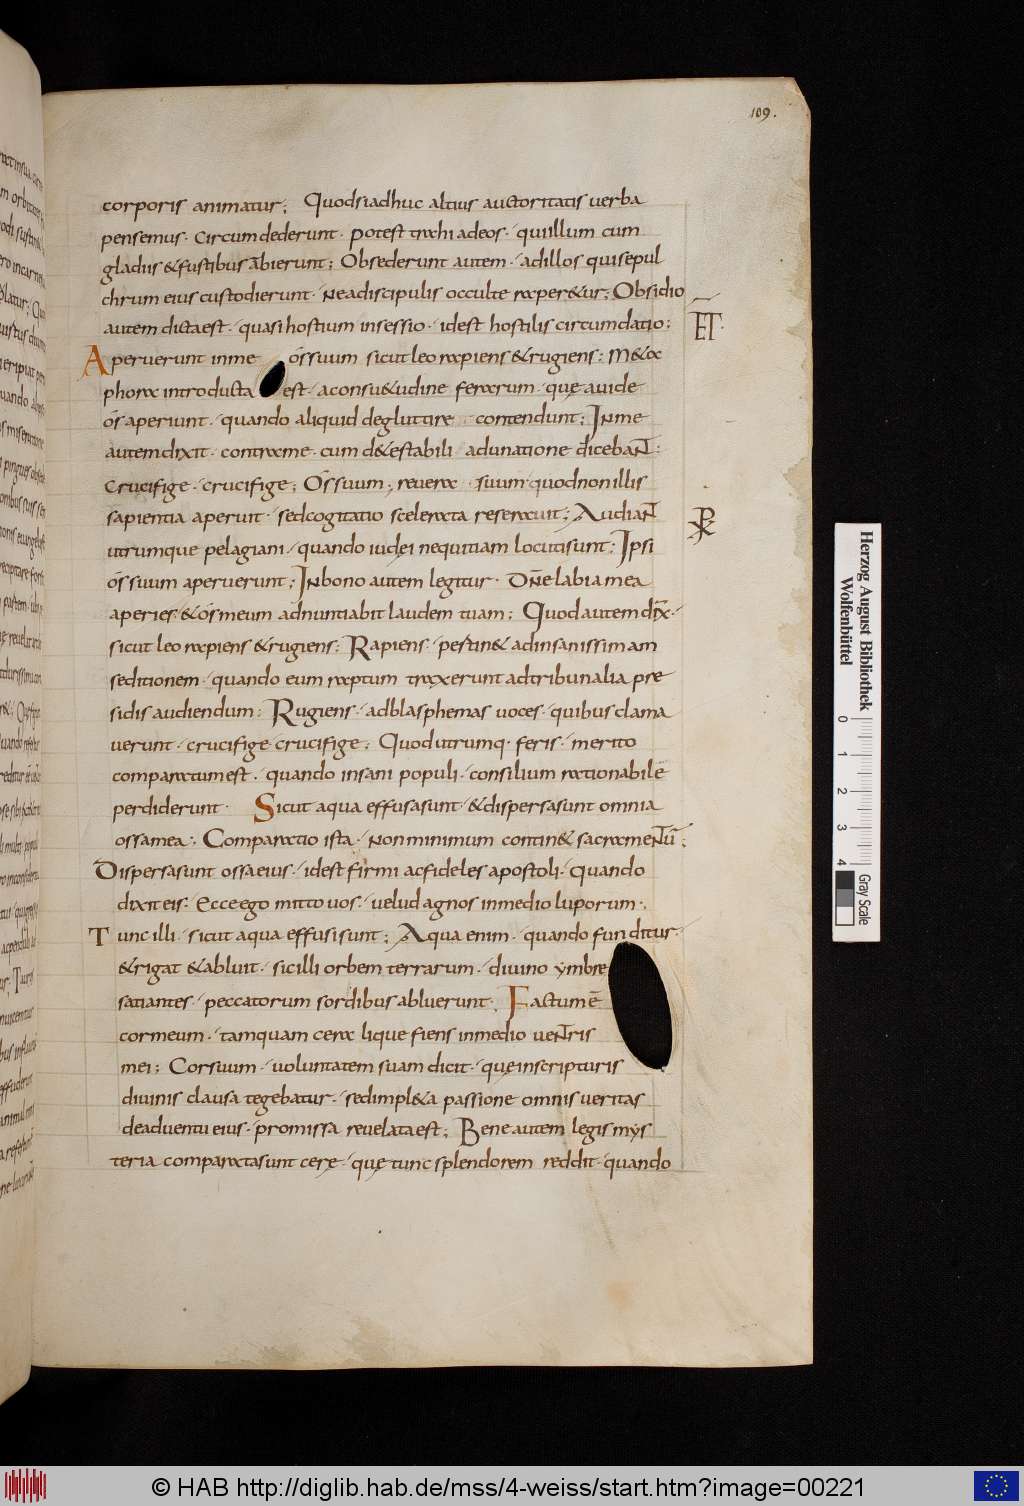 109.
corporis animatur; Quodsiadhuc altius auctoritatis uerba
pensemus· circumdederunt· potest trahi adeos· quiillum cum
gladiis &fustibus abierunt; Obsederunt autem· adillos quisepul
chrum eius custodierunt· Neadiscipulis occulte raper&ur; Obsidio
autem dictaest· quasi hostium insessio· idest hostilis circumdatio;
ET·
Aperuerunt inme os suum sicut leo rapiens &rugiens; M&a
phora introducta est· aconsu&udine ferarum· quę auide
os aperiunt· quando aliquid degluttire contendunt; Inme
autem dixit· contrame· cum d&estabili adunatione dicebaNT:
Crucifige· crucifige; Os suum· reuera suum quodnonillis
sapientia aperuit· sedcogitatio scelerata reserauit; AudiaNT
utrumque pelagiani· quando iudęi nequitiam locutisunt; Ipsi
os suum aperuerunt; Inbono autem legitur· Dn̄e labia mea
aperies· &os meum adnuntiabit laudem tuam; Quod autem dix̄·
sicut leo rapiens &rugiens; Rapiens· pertin& adinsanissimam
seditionem· quando eum raptum traxerunt adtribunalia pre
sidis audiendum; Rugiens· adblasphemas uoces· quibus clama
uerunt· crucifige crucifige; Quod utrumq· feris· merito
comparatum est· quando insani populi· consilium rationabile
perdiderunt· Sicut aqua effusasunt· &dispersasunt omnia
ossamea; Comparatio ista· Non minimum contin& sacrameNTū;
Dispersasunt ossaeius· idest firmi acfideles apostoli· quando
dixit eis· Ecce ego mitto uos· uelud agnos inmedio luporum·
Tunc illi· sicut aqua effusisunt; Aqua enim· quando funditur·
&rigat &abluit· sicilli orbem terrarum· diuino ymbre
satiantes· peccatorum sordibus abluerunt· Factumē
cormeum· tamquam cera liquefiens inmedio ueNTris
mei; Corsuum· uoluntatem suam dicit· quęinscripturis
diuinis clausa tegebatur· sedimpl&a passione omnis ueritas
deaduentu eius· promissa reuelataest; Bene autem legis mys
teria comparatasunt cerę· quę tunc splendorem reddit· quando
Herzog August Bibliothek
Wolfenbüttel
0 1 2 3 4
Gray Scale
© HAB http://diglib.hab.de/mss/4-weiss/start.htm?image=00221